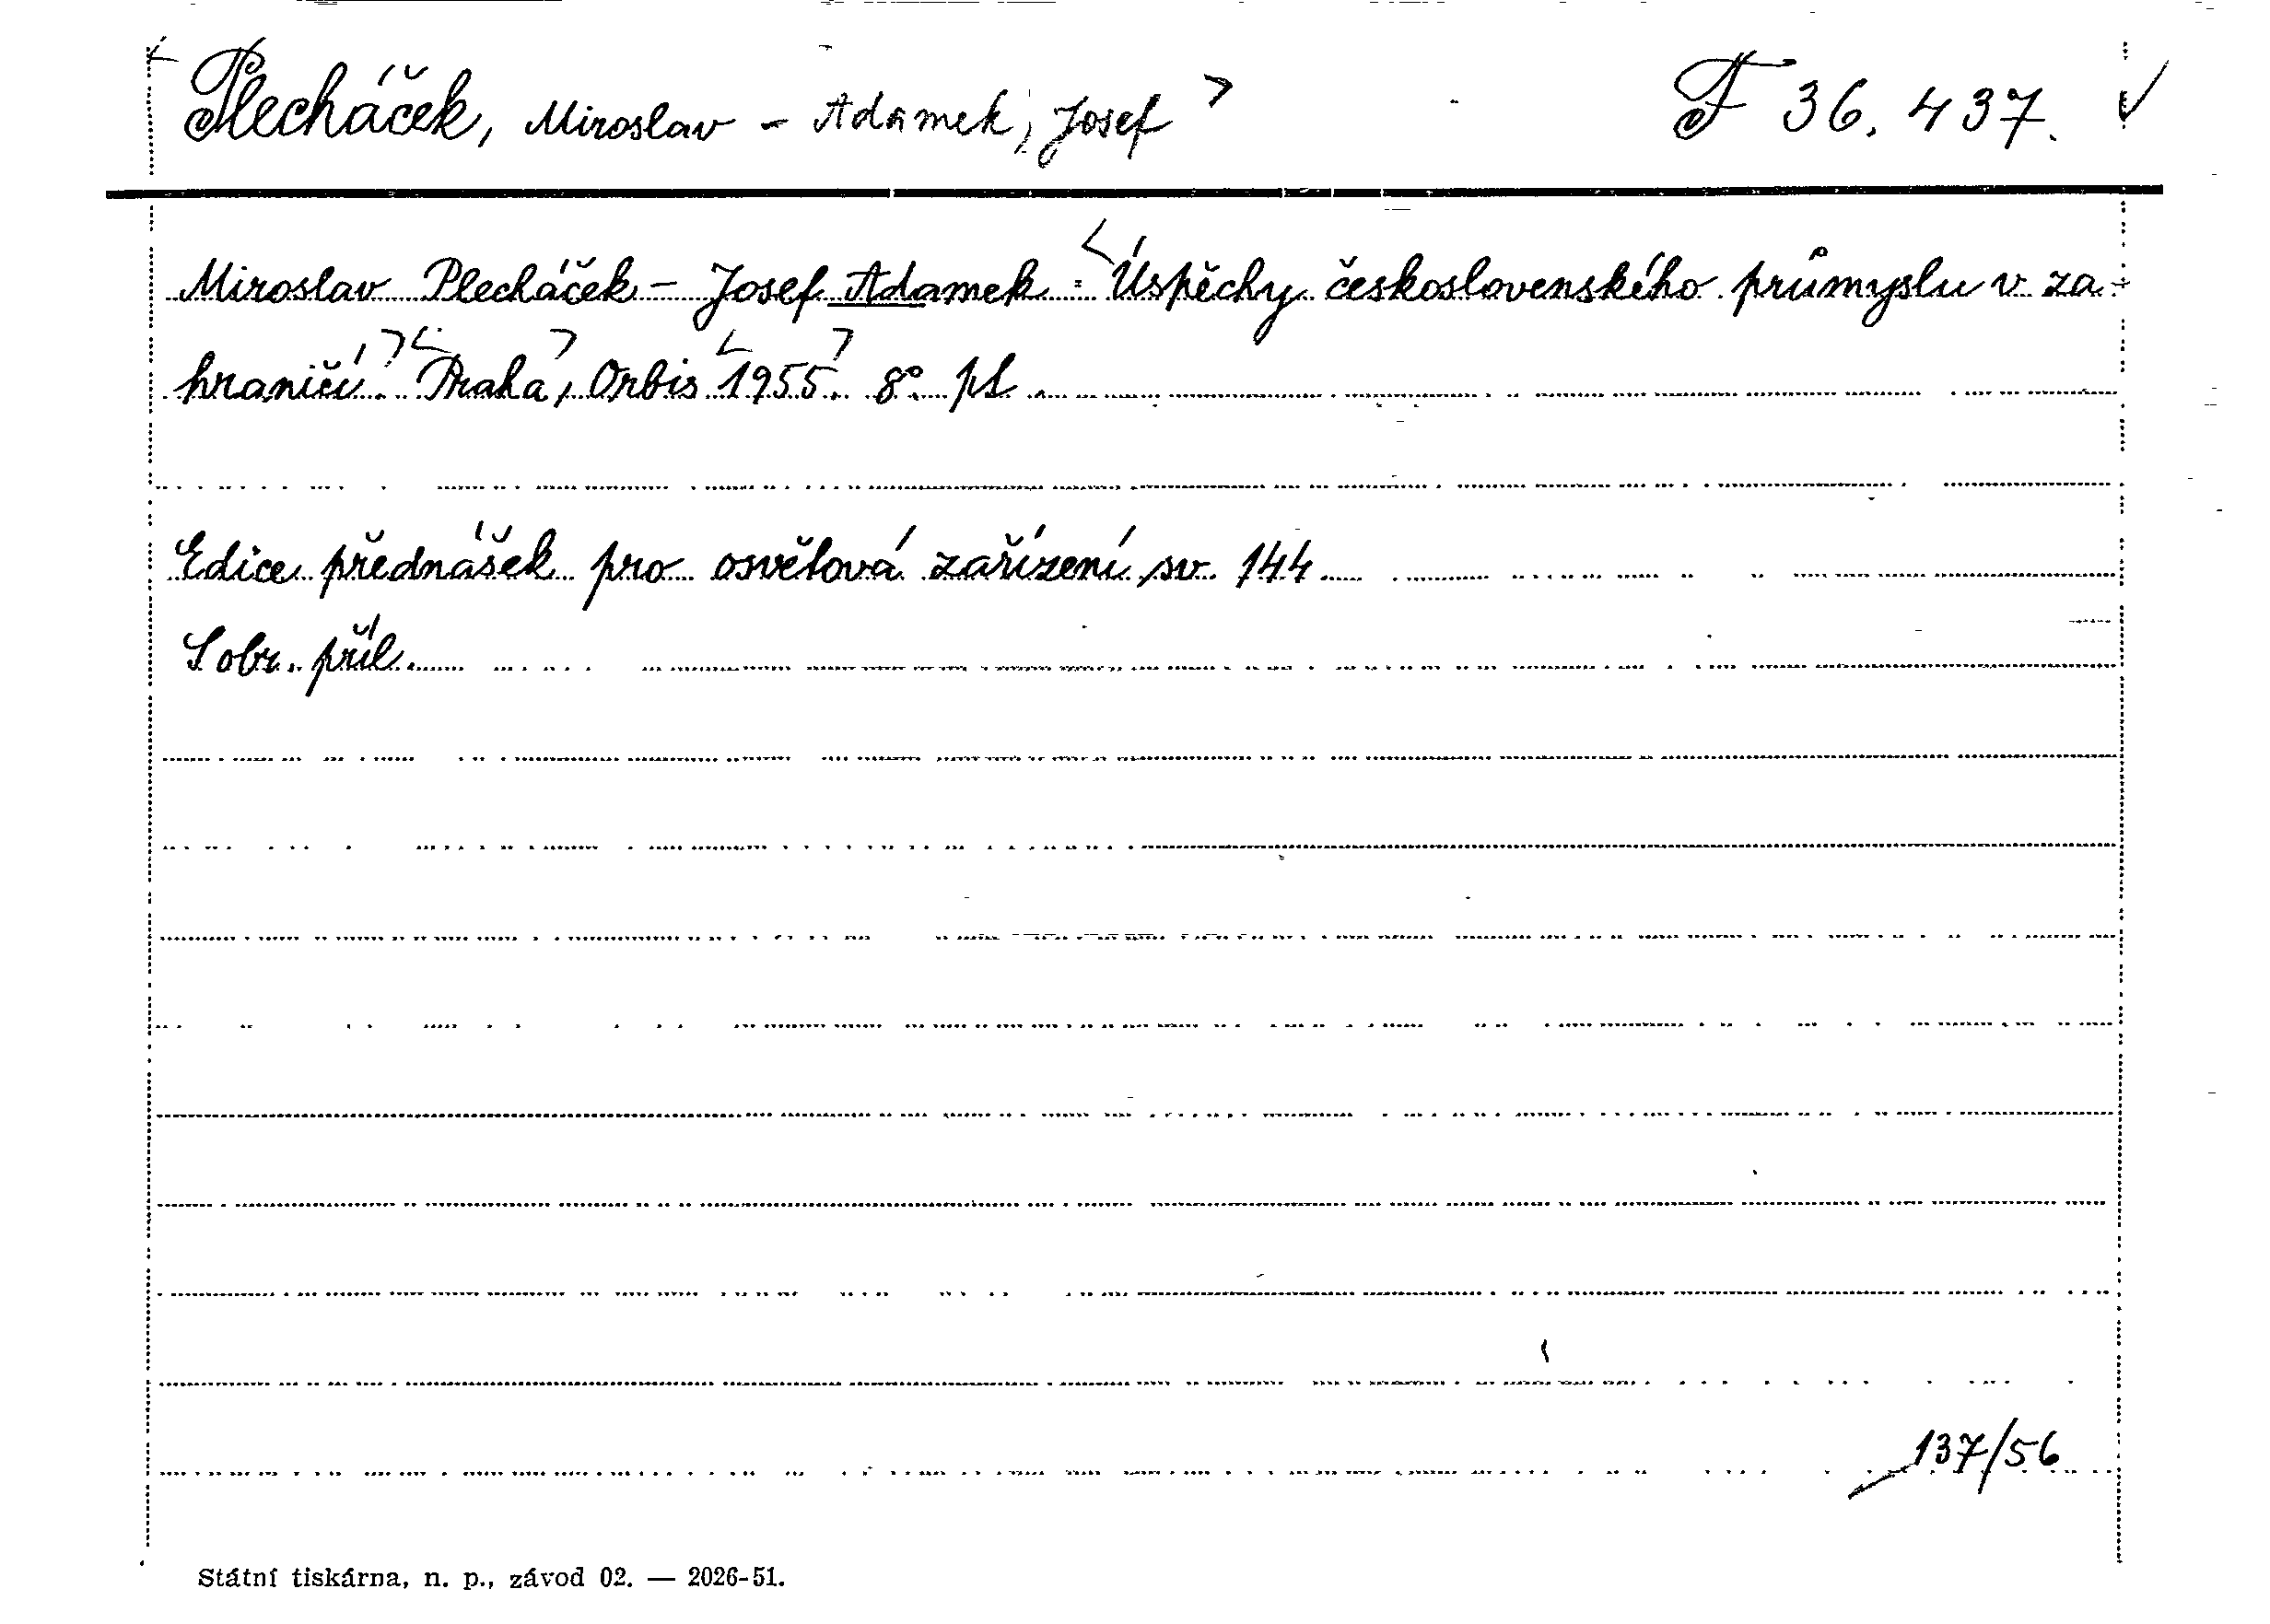 Plecháček, Miroslav - Adamek, Josef F 36.437.
Miroslav Plecháček - Josef Adamek: Úspěchy československého průmyslu v za-
hraničí. Praha, Orbis 1955. 8° pl.
Edice přednášek pro osvětová zařízení sv. 144
S obr. příl.
137/56
Státní tiskárna, n. p., závod 02. — 2026-51.